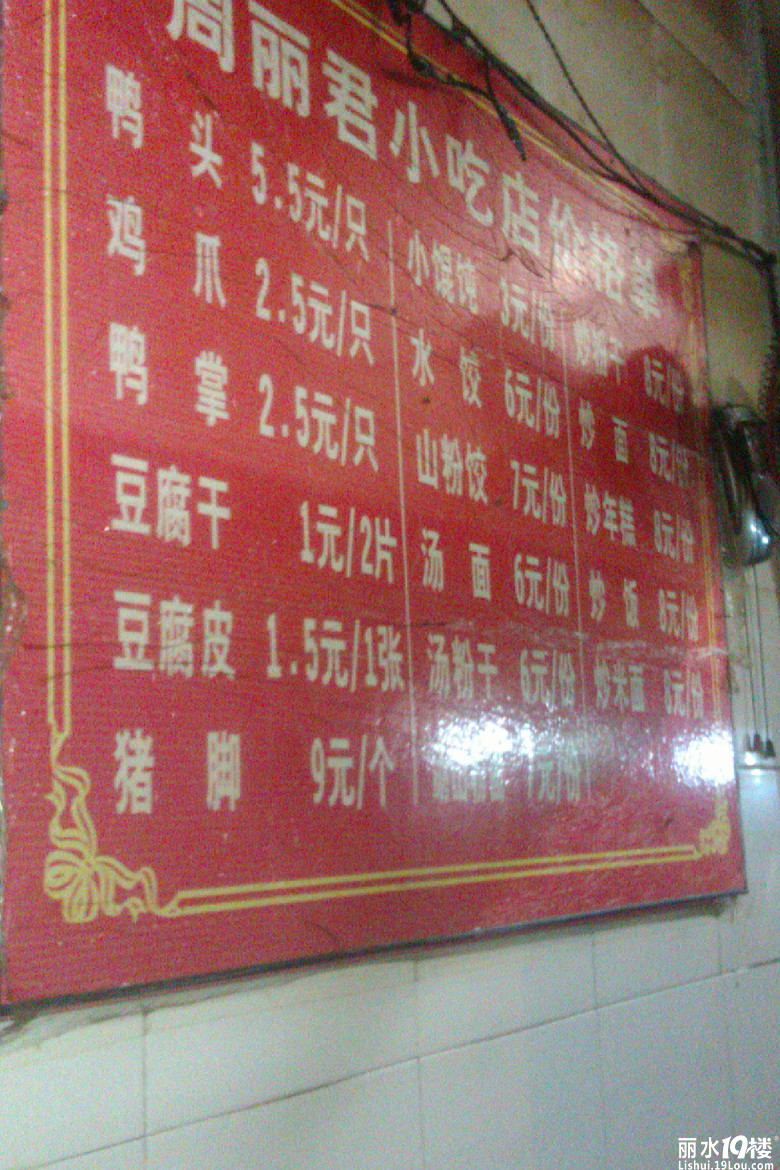 周丽君小吃店价格单
鸭头 5.5元/只
鸡爪 2.5元/只
鸭掌 2.5元/只
豆腐干 1元/2片
豆腐皮 1.5元/1张
猪脚 9元/个
小馄饨 3元/份
水饺 6元/份
山粉饺 7元/份
汤面 6元/份
汤粉干 6元/份
7元/份
炒粉干 8元/份
炒面 8元/份
炒年糕 8元/份
炒饭 8元/份
炒米面 8元/份
丽水19楼
Lishui.19Lou.com